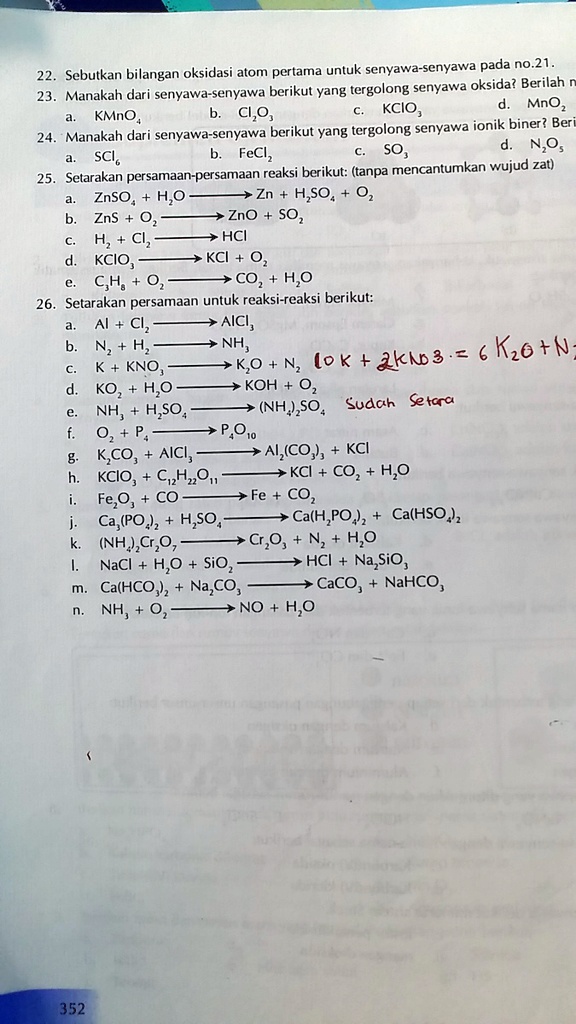 22. Sebutkan bilangan oksidasi atom pertama untuk senyawa-senyawa pada no.21.
23. Manakah dari senyawa-senyawa berikut yang tergolong senyawa oksida? Berilah n
a. KMnO₄ b. Cl₂O₃ c. KClO₃ d. MnO₂
24. Manakah dari senyawa-senyawa berikut yang tergolong senyawa ionik biner? Beri
a. SCl₆ b. FeCl₂ c. SO₃ d. N₂O₅
25. Setarakan persamaan-persamaan reaksi berikut: (tanpa mencantumkan wujud zat)
a. ZnSO₄ + H₂O ⟶ Zn + H₂SO₄ + O₂
b. ZnS + O₂ ⟶ ZnO + SO₂
c. H₂ + Cl₂ ⟶ HCl
d. KClO₃ ⟶ KCl + O₂
e. C₃H₈ + O₂ ⟶ CO₂ + H₂O
26. Setarakan persamaan untuk reaksi-reaksi berikut:
a. Al + Cl₂ ⟶ AlCl₃
b. N₂ + H₂ ⟶ NH₃
c. K + KNO₃ ⟶ K₂O + N₂ 10K + 2KNO3 = 6 K₂O + N₂
d. KO₂ + H₂O ⟶ KOH + O₂
e. NH₃ + H₂SO₄ ⟶ (NH₄)₂SO₄ Sudah Setara
f. O₂ + P₄ ⟶ P₄O₁₀
g. K₂CO₃ + AlCl₃ ⟶ Al₂(CO₃)₃ + KCl
h. KClO₃ + C₁₂H₂₂O₁₁ ⟶ KCl + CO₂ + H₂O
i. Fe₂O₃ + CO ⟶ Fe + CO₂
j. Ca₃(PO₄)₂ + H₂SO₄ ⟶ Ca(H₂PO₄)₂ + Ca(HSO₄)₂
k. (NH₄)₂Cr₂O₇ ⟶ Cr₂O₃ + N₂ + H₂O
l. NaCl + H₂O + SiO₂ ⟶ HCl + Na₂SiO₃
m. Ca(HCO₃)₂ + Na₂CO₃ ⟶ CaCO₃ + NaHCO₃
n. NH₃ + O₂ ⟶ NO + H₂O
352